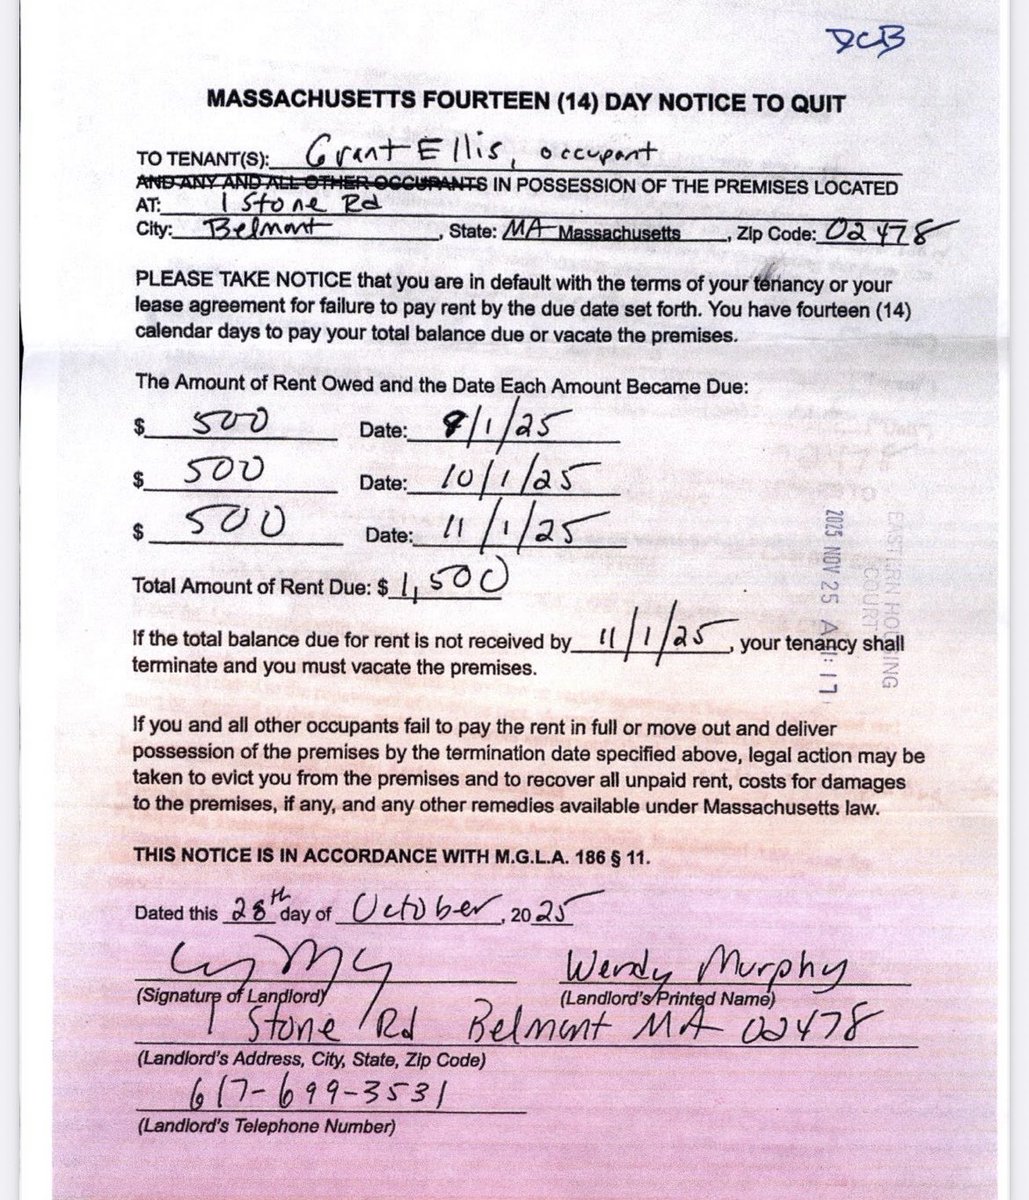 DCB
MASSACHUSETTS FOURTEEN (14) DAY NOTICE TO QUIT
TO TENANT(S): Grant Ellis, occupant
AND ANY AND ALL OTHER OCCUPANTS IN POSSESSION OF THE PREMISES LOCATED
AT: 1 Stone Rd
City: Belmont, State: MA Massachusetts, Zip Code: 02478
PLEASE TAKE NOTICE that you are in default with the terms of your tenancy or your
lease agreement for failure to pay rent by the due date set forth. You have fourteen (14)
calendar days to pay your total balance due or vacate the premises.
The Amount of Rent Owed and the Date Each Amount Became Due:
$ 500 Date: /1/25
$ 500 Date: 10/1/25
$ 500 Date: 11/1/25
Total Amount of Rent Due: $ 1,500
If the total balance due for rent is not received by 11/1/25, your tenancy shall
terminate and you must vacate the premises.
If you and all other occupants fail to pay the rent in full or move out and deliver
possession of the premises by the termination date specified above, legal action may be
taken to evict you from the premises and to recover all unpaid rent, costs for damages
to the premises, if any, and any other remedies available under Massachusetts law.
THIS NOTICE IS IN ACCORDANCE WITH M.G.L.A. 186 § 11.
Dated this 28th day of October, 2025
Wendy Murphy
(Signature of Landlord) (Landlord's Printed Name)
1 Stone Rd Belmont MA 02478
(Landlord's Address, City, State, Zip Code)
617-699-3531
(Landlord's Telephone Number)
EASTERN HOUSING
COURT
2025 NOV 25 A 11:17